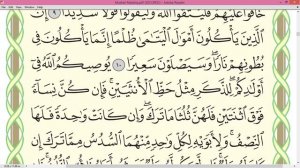 خَافُوا۟ عَلَيْهِمْ فَلْيَتَّقُوا۟ ٱللَّهَ وَلْيَقُولُوا۟ قَوْلًا سَدِيدًا ٩ إِنَّ
ٱلَّذِينَ يَأْكُلُونَ أَمْوَٰلَ ٱلْيَتَٰمَىٰ ظُلْمًا إِنَّمَا يَأْكُلُونَ فِى
بُطُونِهِمْ نَارًا وَسَيَصْلَوْنَ سَعِيرًا ١٠ يُوصِيكُمُ ٱللَّهُ فِىٓ
أَوْلَٰدِكُمْ لِلذَّكَرِ مِثْلُ حَظِّ ٱلْأُنثَيَيْنِ فَإِن كُنَّ نِسَآءً
فَوْقَ ٱثْنَتَيْنِ فَلَهُنَّ ثُلُثَا مَا تَرَكَ وَإِن كَانَتْ وَٰحِدَةً فَلَهَا
ٱلنِّصْفُ وَلِأَبَوَيْهِ لِكُلِّ وَٰحِدٍ مِّنْهُمَا ٱلسُّدُسُ مِمَّا تَرَكَ إِن